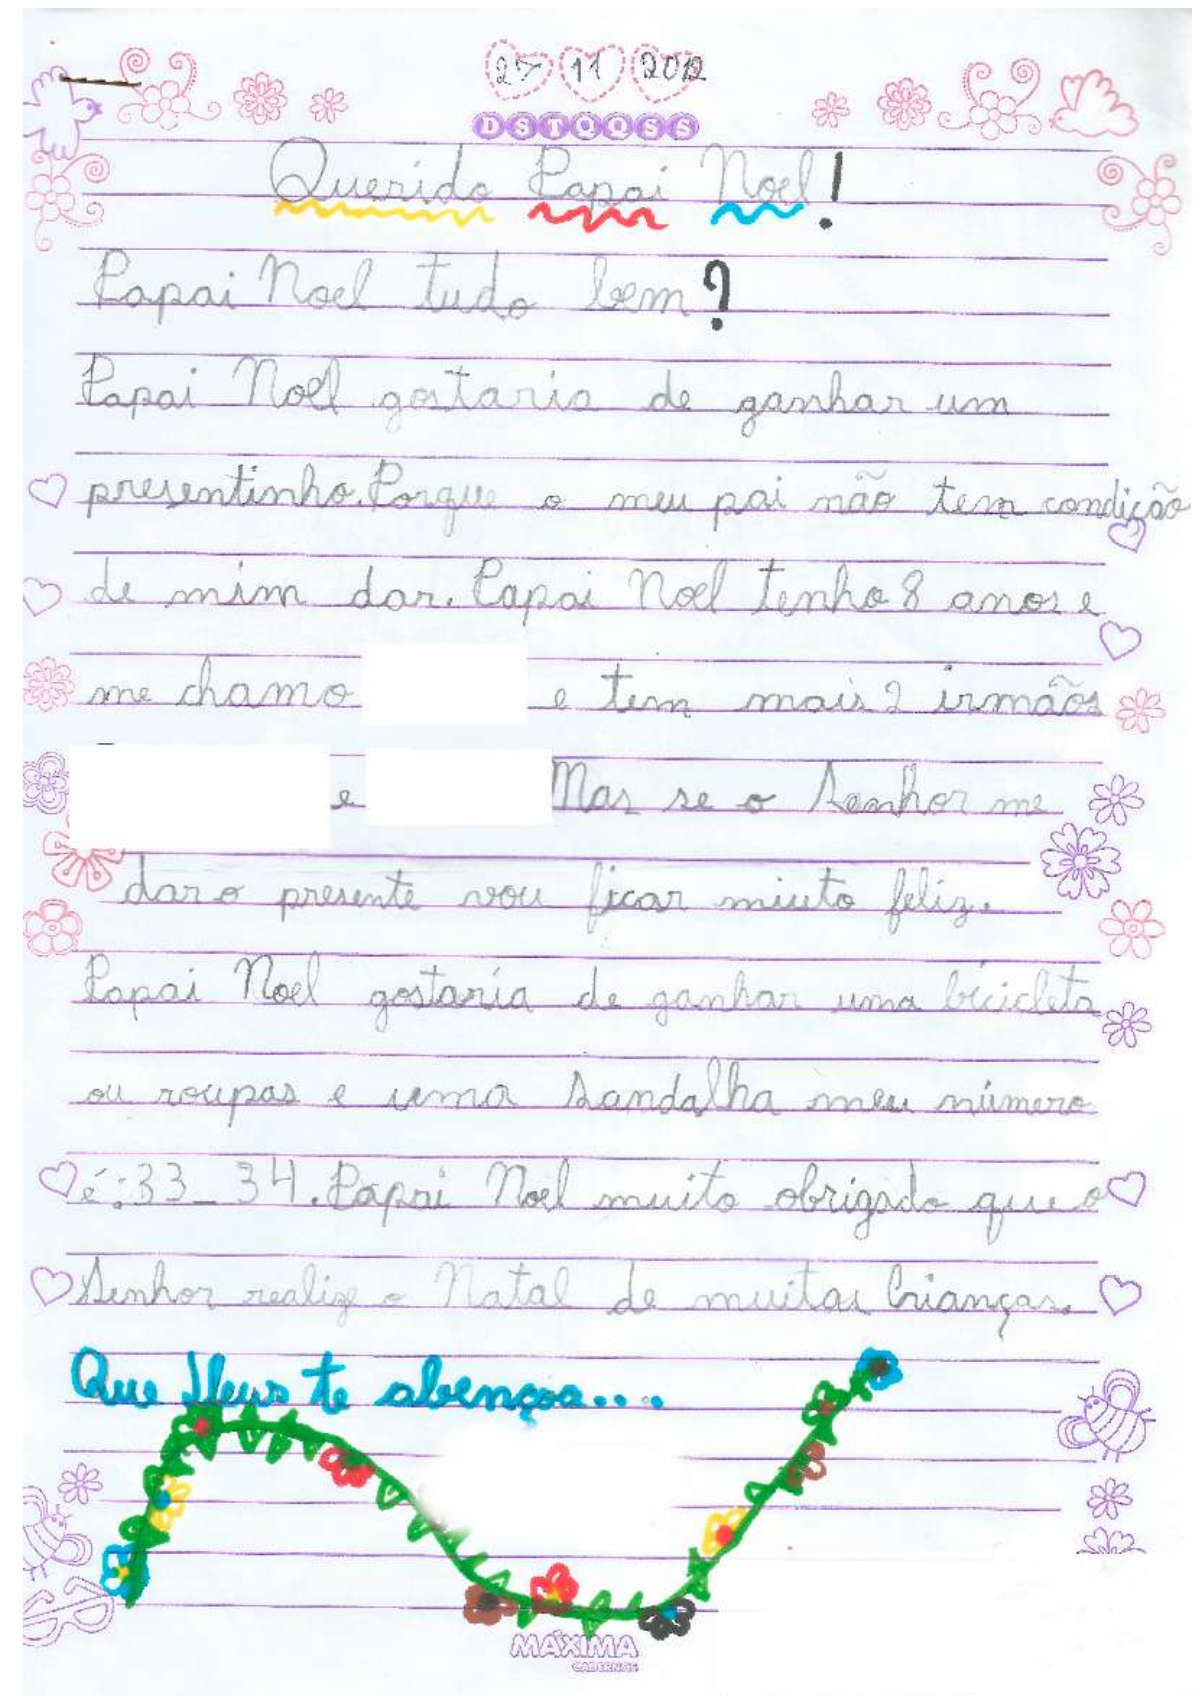 27 11 2012
D S T Q Q S S
Querido Papai Noel!
Papai Noel tudo bem?
Papai Noel gostaria de ganhar um
presentinho. Porque o meu pai não tem condição
de mim dar. Papai Noel tenho 8 anos e
me chamo e tem mais 2 irmãos
e Mas se o Senhor me
dar o presente vou ficar miuto feliz.
Papai Noel gostaria de ganhar uma bicicleta
ou roupas e uma Sandalha meu número
é: 33_34. Papai Noel muito obrigado que o
Senhor realize o Natal de muitas Crianças.
Que Deus te abençoa....
MÁXIMA
CADERNOS